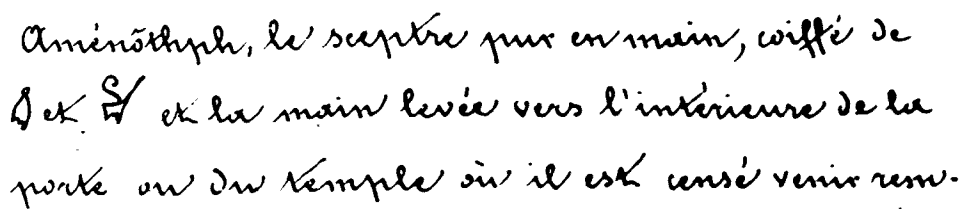 Aménôthph, le sceptre pur en main, coiffé de
et et la main levée vers l'intérieure de la
porte ou du temple où il est censé venir rem-